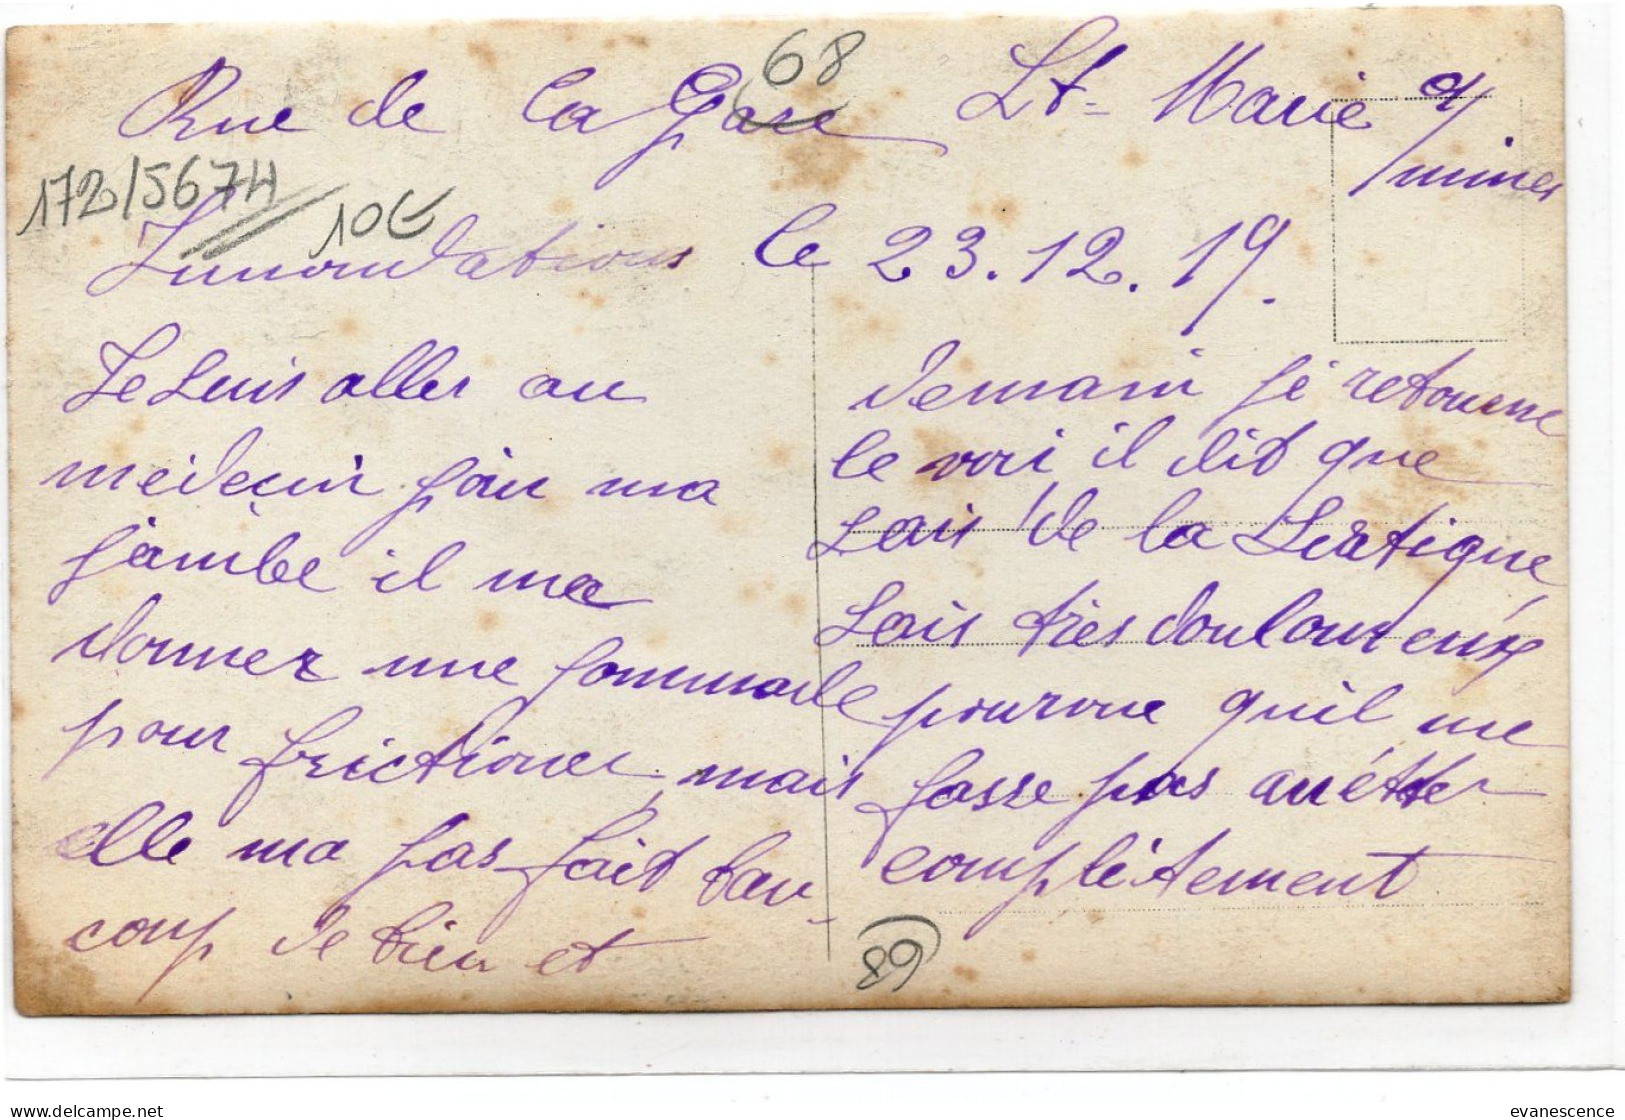 68
Rue de la Gare St- Marie a/
mines
172/5674
10€
Innondations le 23.12.19.
Je suis aller au
médecin pour ma
jambe il ma
donner une pommade
pour frictioner mais
elle ma pas fait bau-
coup de bien et
demain je retourne
le voir il dit que
sais de la siatique,
sais très douloureux
pourvue quil me
fasse pas arrétter
complètement
68
evanescence